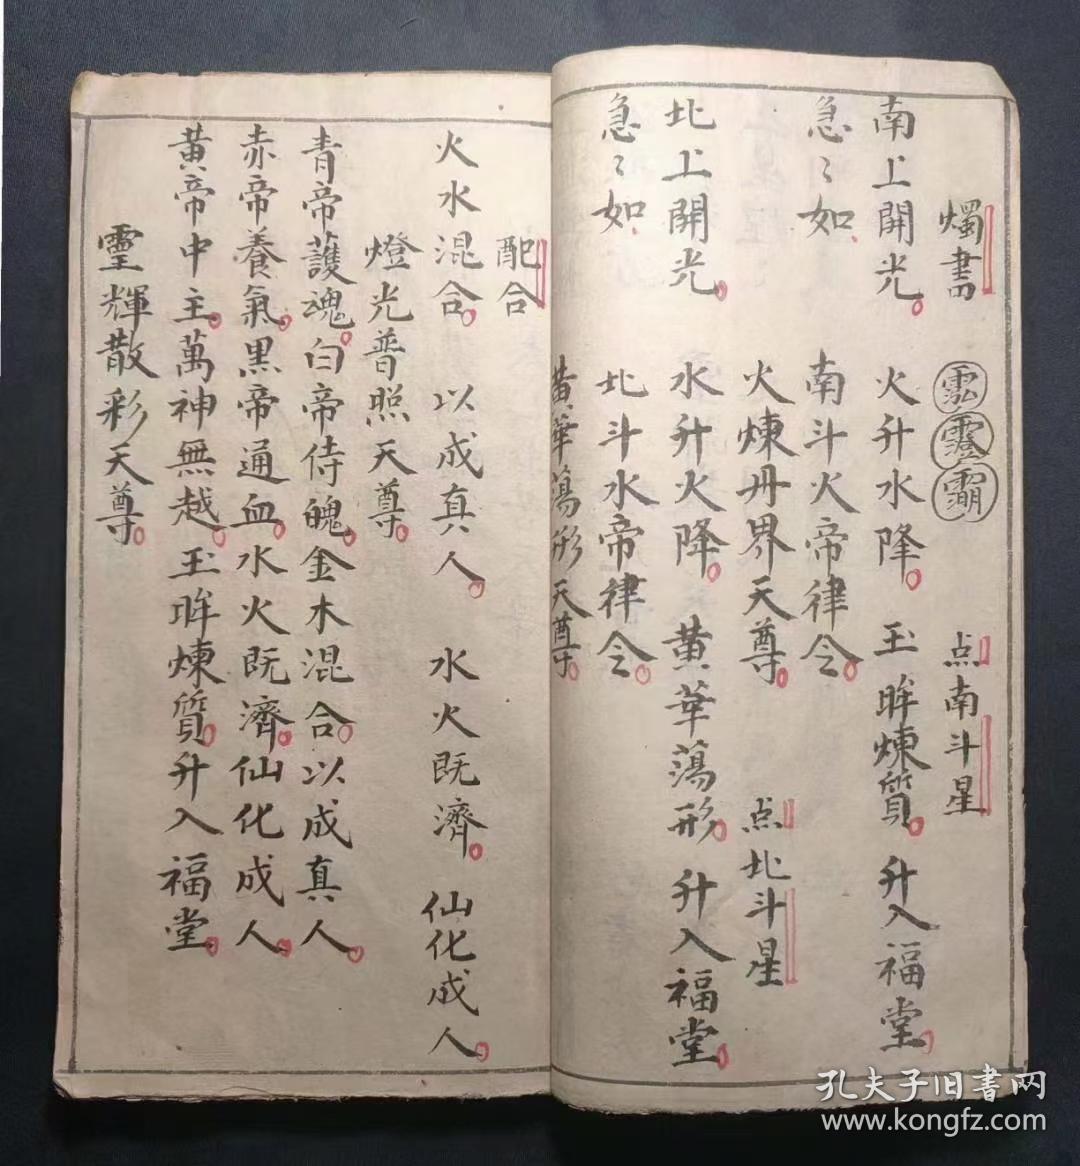 燭書 点南斗星
南上開光。火升水降。玉眸煉質。升入福堂。
急〻如、南斗火帝律令。
火煉丹界天尊。点北斗星
北上開光。水升火降。黄華蕩形。升入福堂。
急〻如、北斗水帝律令。
黄華蕩形天尊。
配合
火水混合。以成真人。水火既濟。仙化成人。
燈光普照天尊。
青帝護魂。白帝侍魄。金木混合。以成真人。
赤帝養氣。黑帝通血。水火既濟。仙化成人。
黄帝中主。萬神無越。玉眸煉質。升入福堂。
靈輝散彩天尊。
孔夫子旧書网
www.kongfz.com